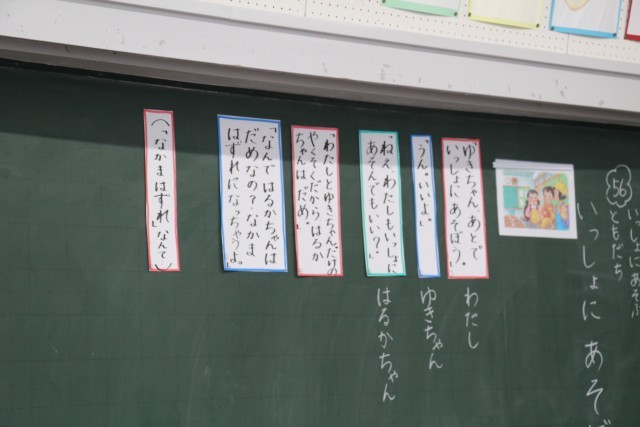 ㊿+6
いっしょにあそぶ
ともだち
いっしょに あそ
「ゆきちゃん あとで
いっしょに あそぼう。」
わたし
「うん。いいよ。」
ゆきちゃん
「ねえ わたしもいっしょに
あそんでもいい？」
はるかちゃん
「わたしとゆきちゃんだけの
やくそくだから はるか
ちゃんは だめ。」
「なんで はるかちゃんは
だめなの？ なかま
はずれになっちゃうよ。
(「なかまはずれ」なんて)